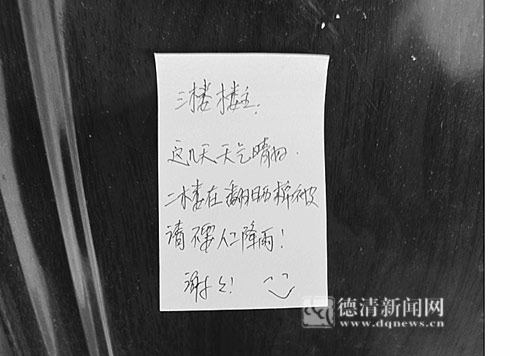 三楼楼主，
这几天天气晴好．
二楼在翻晒棉被
请不要人工降雨！
谢谢！
德清新闻网
www.dqnews.cn